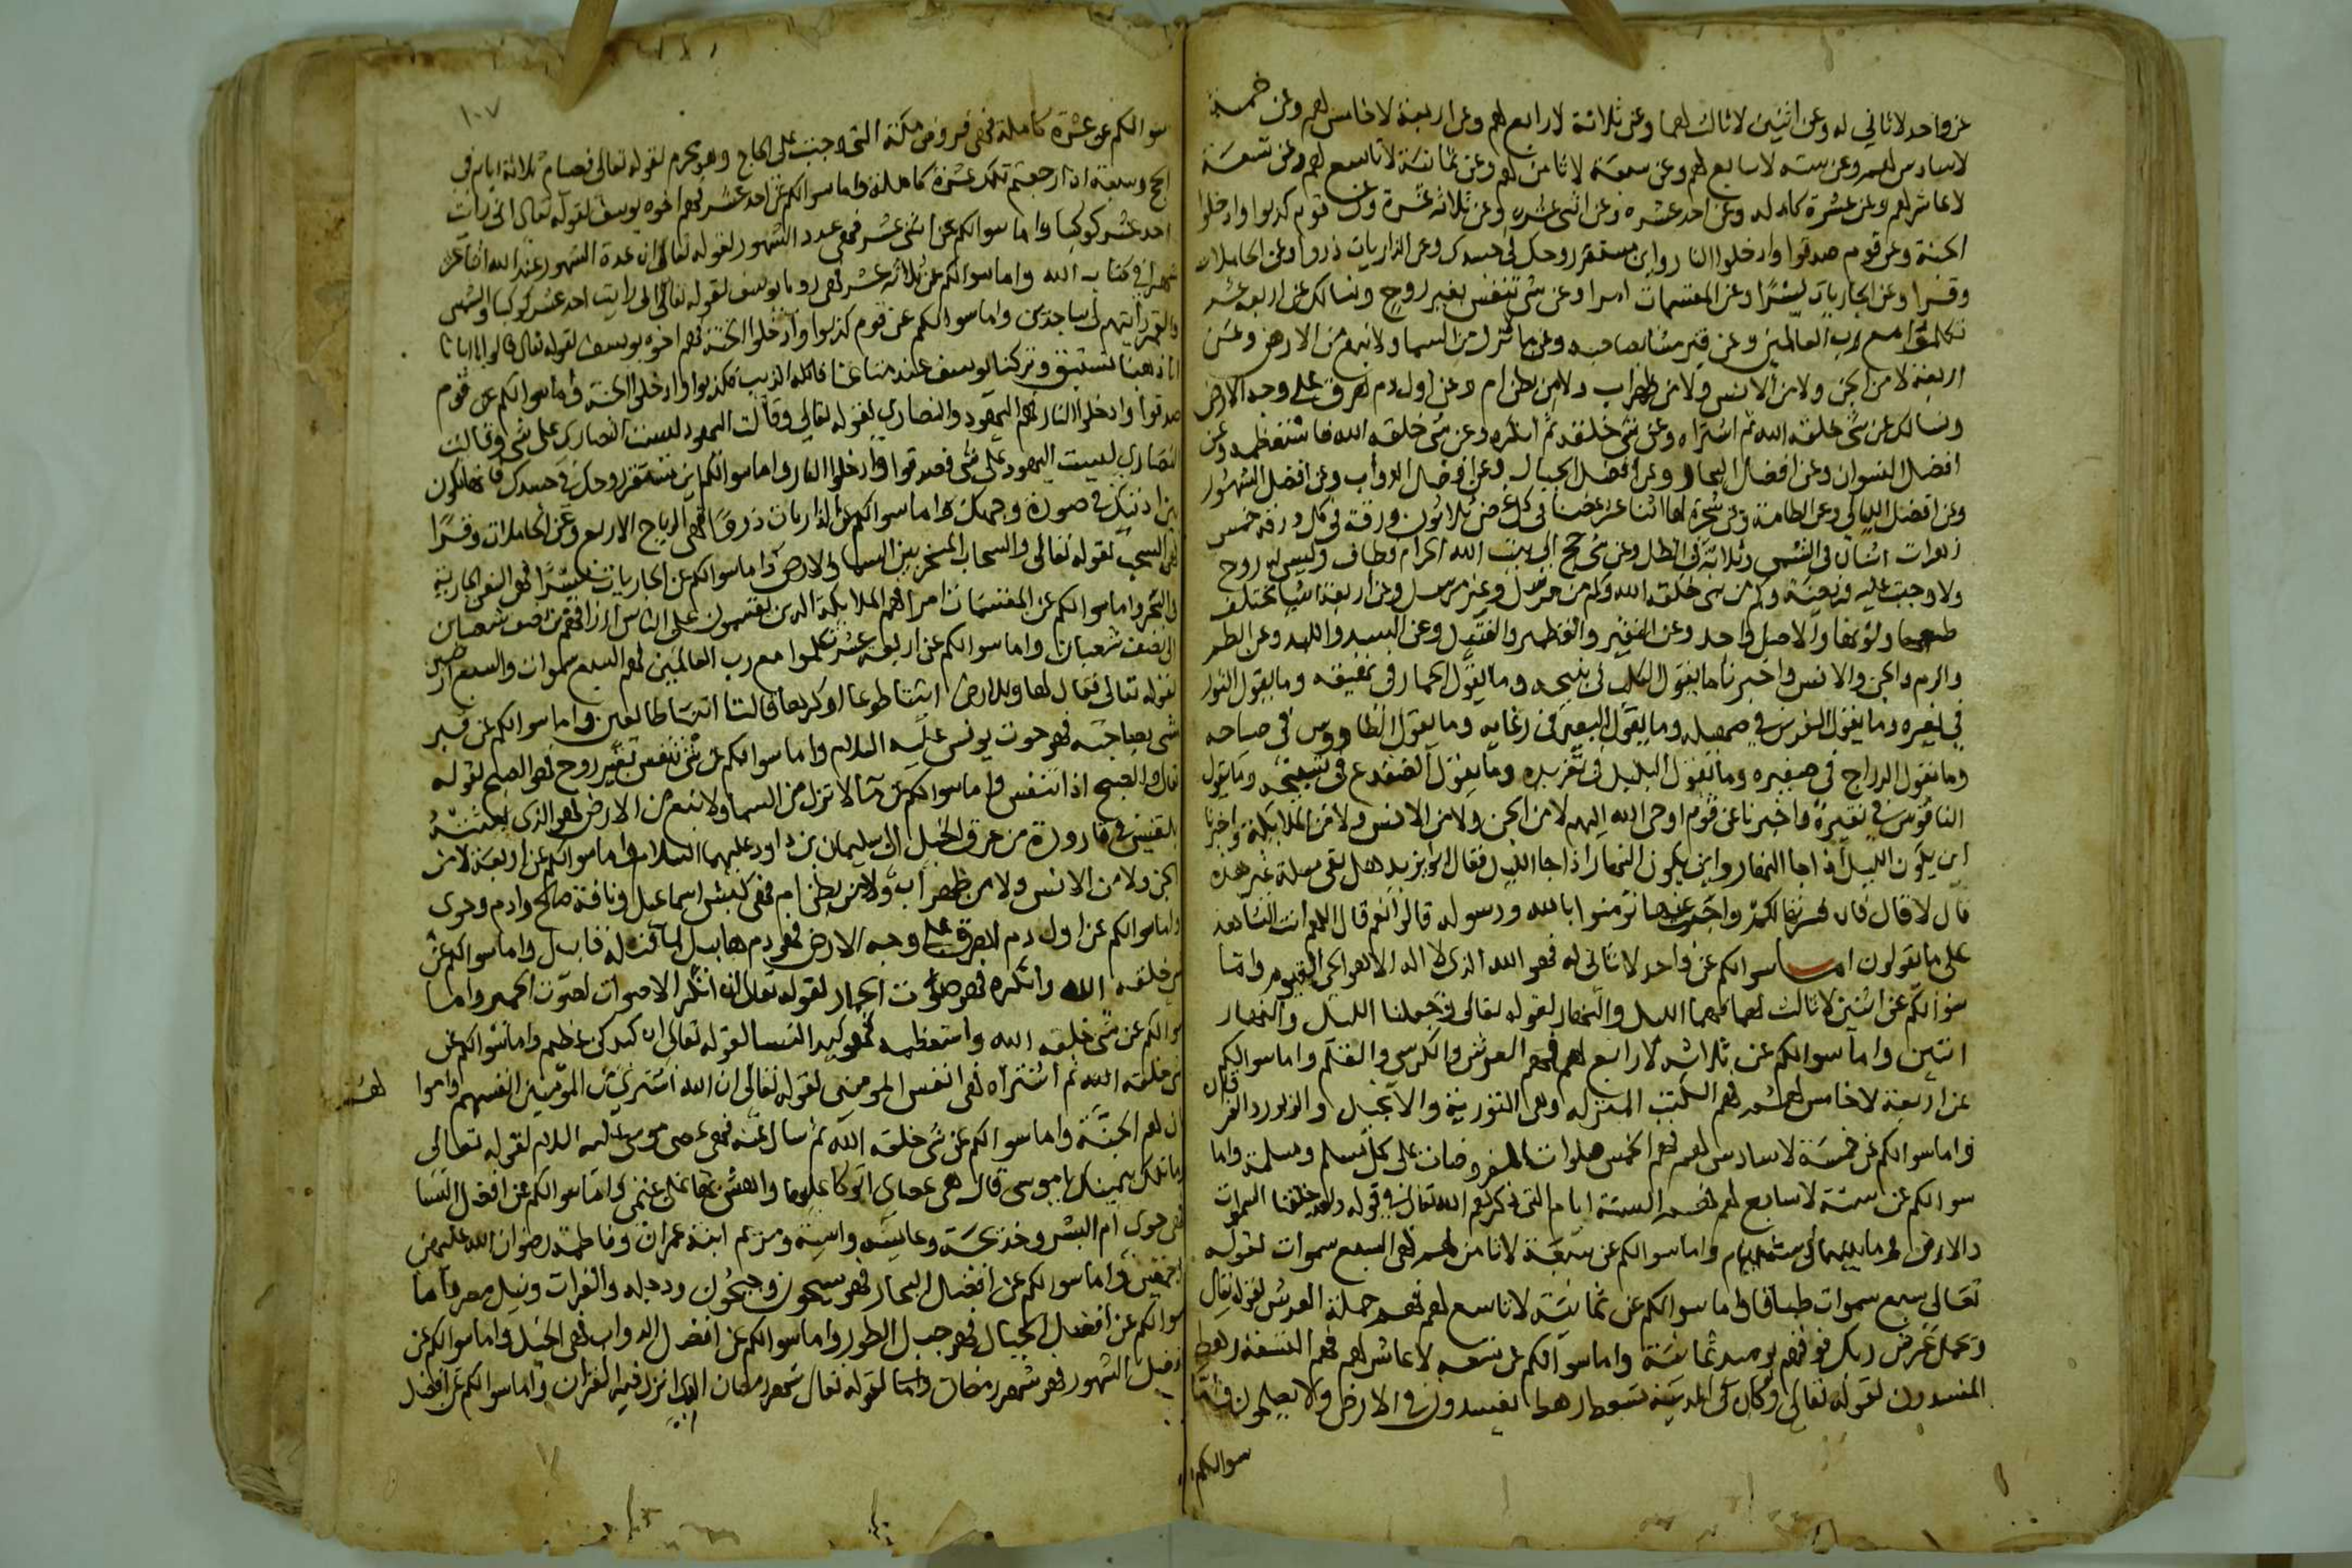 عن واحد لا ثاني له وعن اثنين لا ثالث لهما وعن ثلاثة لا رابع لهم وعن اربعة لا خامس لهم وعن خمسة
لا سادس لهم وعن ستة لا سابع لهم وعن سبعة لا ثامن لهم وعن ثمانية لا تاسع لهم وعن تسعة
لا عاشر لهم وعن عشرة كاملة وعن احد عشره وعن اثنى عشره وعن ثلاثة عشرة وعن قوم كذبوا وادخلوا
الجنة وعن قوم صدقوا وادخلوا النار واين مستقر روحك في جسدك وعن الذاريات ذروا وعن الحاملات
وقرا وعن الجاريات يسرًا وعن المقسمات امرا وعن شي تنفس بغير روح ونسالك عن اربعة عشر
تكلموا مع رب العالمين وعن قبر مشا بصاحبه وعن ما نزل من السما ولا نبع من الارض وعن
اربعة لا من الجن ولا من الانس ولا من ظهر اب ولا من بطن ام وعن اول دم اهرق على وجه الارض
ونسالك عن شي خلقه الله ثم اشتراه وعن شي خلقه ثم انكره وعن شي خلقه الله فاستعظمه وعن
افضل النسوان وعن افضل البحار وعن افضل الجبال وعن افضل الدواب وعن افضل الشهور
وعن افضل الليالي وعن الطامة وعن شجرة لها اثنا عشر غصنا في كل غصن ثلاثون ورقة في كل ورقة خمس
زهرات اثنان في الشمس وثلاثة في الظل وعن شي حج الى بيت الله الحرام وطاف وليس له روح
ولا وجبت عليه فريضة وكم من نبي خلقه الله وكم من مرسل وغير مرسل وعن اربعة اشيا مختلف
طعمها ولونها والاصل واحد وعن النقير والقطمير والفتيل وعن السبد واللبد وعن الطم
والرم والجن والانس واخبرنا ما يقول الكلب في نبيحه وما يقول الحمار في نهيقه وما يقول الثور
في نعيره وما يقول الفرس في صهيله وما يقول البعير في رغايه وما يقول الطاووس في صياحه
وما يقول الدراج في صفيره وما يقول البلبل في تغريده وما يقول الضفدع في تسبيحه وما يقول
الناقوس في نقيره واخبرنا عن قوم اوحى الله اليهم لا من الجن ولا من الانس ولا من الملايكة واخبرنا
اين يكون الليل اذا جا النهار واين يكون النهار اذا جا الليل فقال ابو يزيد هل بقى مسلة غير هذه
قال لا قال فان فسرتها لكم واجبت عنها تومنوا بالله ورسوله قالوا نعم قال اللهم انت الشاهد
على ما يقولون اما سوالكم عن واحد لا ثاني له فهو الله الذي لا اله الا هو الحي القيوم واما
سوالكم عن اثنين لا ثالث لهما فهما الليل والنهار لقوله تعالى وجعلنا الليل والنهار
اثنين واما سوالكم عن ثلاثة لا رابع لهم فهم العرش والكرسي والقلم واما سوالكم
عن اربعة لا خامس لهم فهم الكتب المنزله وهي التورية والانجيل والزبور والفرقان
واما سوالكم عن خمسة لا سادس لهم فهم الخمس صلوات المفروضات على كل مسلم ومسلمة واما
سوالكم عن ستة لا سابع لهم فهم الستة ايام التي ذكرهم الله تعالى في قوله ولقد خلقنا السموات
والارض وما بينهما في ستة ايام واما سوالكم عن سبعة لا ثامن لهم فهى السبع سموات لقوله
تعالى سبع سموات طباقا واما سوالكم عن ثمانية لا تاسع لهم فهم حملة العرش لقوله تعالى
ويحمل عرش ربك فوقهم يوميذ ثمانية واما سوالكم عن تسعه لا عاشر لهم فهم التسعة رهط
المفسدون لقوله تعالى وكان في المدينة تسعة رهط يفسدون في الارض ولا يصلحون واما
سوالكم
١٠٧
سوالكم عن عشرة كاملة فهى فروض مكة التي وجبت على الحاج وهو محرم لقوله تعالى فصيام ثلاثة ايام في
الحج وسبعة اذا رجعتم تلك عشرة كاملة واما سوالكم عن احد عشر فهم اخوه يوسف لقوله تعالى اني رايت
احد عشر كوكبا واما سوالكم عن اثنى عشر فهى عدد الشهور لقوله تعالى ان عدة الشهور عند الله اثنا عشر
شهرا في كتاب الله واما سوالكم عن ثلاثة عشر فهى رويا يوسف لقوله تعالى اني رايت احد عشر كوكبا والشمس
والقمر رايتهم لي ساجدين واما سوالكم عن قوم كذبوا وادخلوا الجنة فهم اخوه يوسف لقوله تعالى قالوا يا ابانا
انا ذهبنا نستبق وتركنا يوسف عند متاعنا فاكله الذيب فكذبوا وادخلوا الجنة واما سوالكم عن قوم
صدقوا وادخلوا النار فهم اليهود والنصارى لقوله تعالى وقالت اليهود ليست النصارى على شي وقالت
النصارى ليست اليهود على شي فصدقوا وادخلوا النار واما سوالكم اين مستقر روحك في جسدك فانها تكون
بين اذنيك في صورة وجهك واما سوالكم عن الذاريات ذروًا فهى الرياح الاربع وعن الحاملات وقرًا
فهى السحب لقوله تعالى والسحاب المسخر بين السما والارض واما سوالكم عن الجاريات يسرًا فهى السفن الجارية
في البحر واما سوالكم عن المقسمات امرا فهم الملايكة الذين يقسمون على الناس ارزاقهم من نصف شعبان
الى نصف شعبان واما سوالكم عن اربعة عشر تكلموا مع رب العالمين فهم السبع سموات والسبع ارضين
لقوله تعالى فقال لها وللارض ايتيا طوعا او كرها قالتا اتينا طايعين واما سوالكم عن قبر
مشى بصاحبه فهو حوت يونس عليه السلام واما سوالكم عن شي تنفس بغير روح فهو الصبح لقوله
تعالى والصبح اذا تنفس واما سوالكم عن ما لا نزل من السما ولا نبع من الارض فهو الذي بعثته
بلقيس في قارورة من عرق الخيل الى سليمان بن داود عليهما السلام واما سوالكم عن اربعة لا من
الجن ولا من الانس ولا من ظهر اب ولا من بطن ام فهى كبش اسماعيل وناقة صالح وادم وحوى
واما سوالكم عن اول دم اهرق على وجه الارض فهو دم هابيل لما قتله قابيل واما سوالكم عن
شي خلقه الله وانكره فهو صوت الحمار لقوله تعالى ان انكر الاصوات لصوت الحمير واما
سوالكم عن شي خلقه الله واستعظمه فهو كيد النسا لقوله تعالى ان كيدكن عظيم واما سوالكم عن
شي خلقه الله ثم اشتراه فهى انفس المومنين لقوله تعالى ان الله اشترى من المومنين انفسهم واموالهم
بان لهم الجنة واما سوالكم عن شي خلقه الله ثم سال عنه فهى عصى موسى عليه السلام لقوله تعالى
وما تلك بيمينك يا موسى قال هي عصاي اتوكا عليها واهش بها على غنمي واما سوالكم عن افضل النسا
فهى حوى ام البشر وخديجة وعايشه واسية ومريم ابنة عمران وفاطمة رضوان الله عليهن
اجمعين واما سوالكم عن افضل البحار فهو سيحون وجيحون ودجله والفرات ونيل مصر واما
سوالكم عن افضل الجبال فهو جبل الطور واما سوالكم عن افضل الدواب فهى الخيل واما سوالكم عن
افضل الشهور فهو شهر رمضان لقوله تعالى شهر رمضان الذي انزل فيه القران واما سوالكم عن افضل